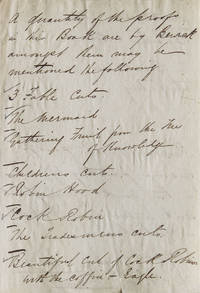 A quantity of the proofs
in this Book are by Bewick
amongst them may be
mentioned the following
3 Fable Cuts
The Mermaid
Gathering Fruit from the Tree
of Knowledge
Childrens cuts.
Robin Hood
Cock Robin
The Tradesmens cuts.
Beautiful cut of Cock Robin
with the coffin - Eagle.